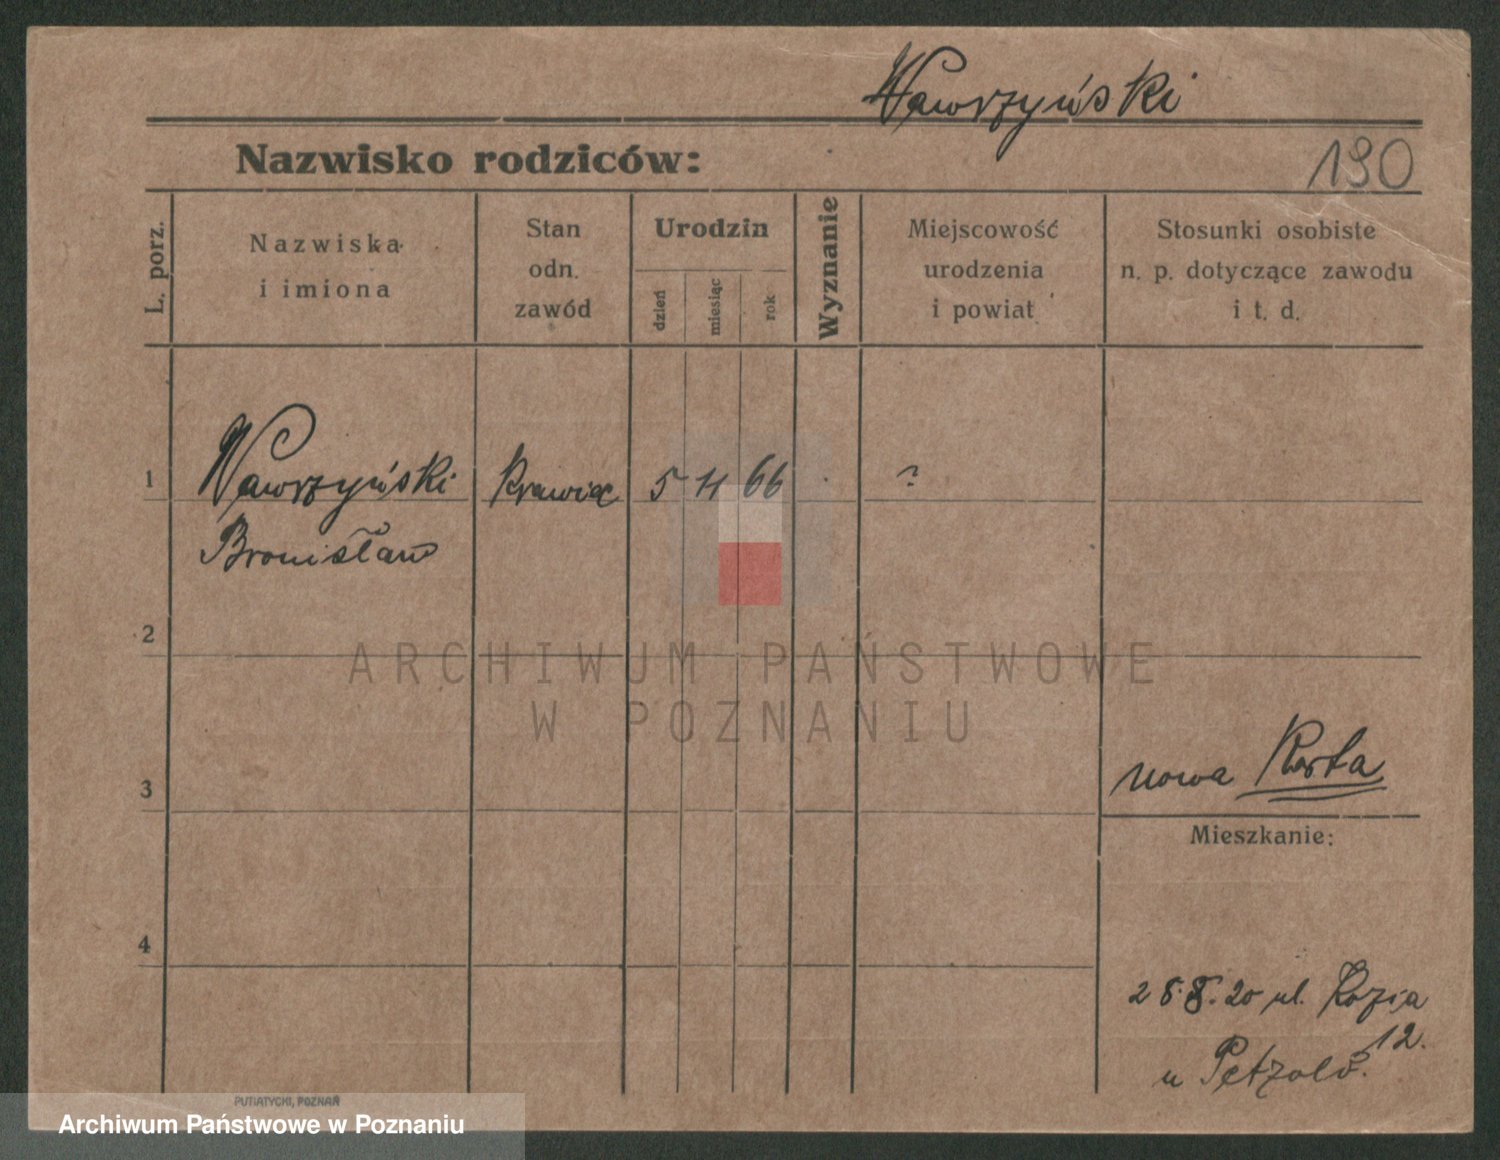 Wawrzyński
Nazwisko rodziców:
190
L. porz.
Nazwiska
i imiona
Stan
odn.
zawód
Urodzin
dzień
miesiąc
rok
Wyznanie
Miejscowość
urodzenia
i powiat
Stosunki osobiste
n. p. dotyczące zawodu
i t. d.
1
Wawrzyński Krawiec 5 11 66 ?
Bronisław
2
ARCHIWUM PAŃSTWOWE
W POZNANIU
3
nowa Karta
Mieszkanie:
4
ul. Kozia
12.
u
PUTIATYCKI, POZNAŃ
Archiwum Państwowe w Poznaniu